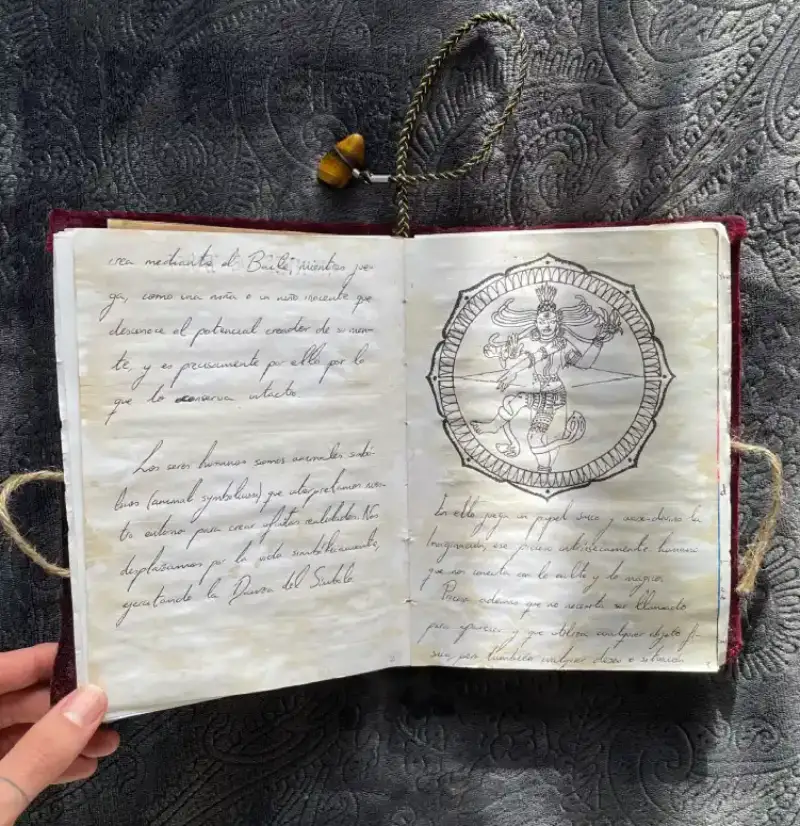 crea mediante el Baile, mientras jue-
ga, como una niña o un niño inocente que
desconoce el potencial creador de su men-
te, y es precisamente por ello por lo
que lo conserva intacto.
Los seres humanos somos animales simbó-
licos (animal symbolicus) que interpretamos nues-
tro entorno para crear infinitas realidades. Nos
desplazamos por la vida simbólicamente,
ejecutando la Danza del Símbolo
En ello, juega un papel único y la
Imaginación, ese proceso intrínsecamente humano
que nos conecta con lo sutil y lo mágico.
Proceso además que no necesita ser llamado
para aparecer y que utiliza cualquier objeto fí-
sico, pero también cualquier deseo o situación